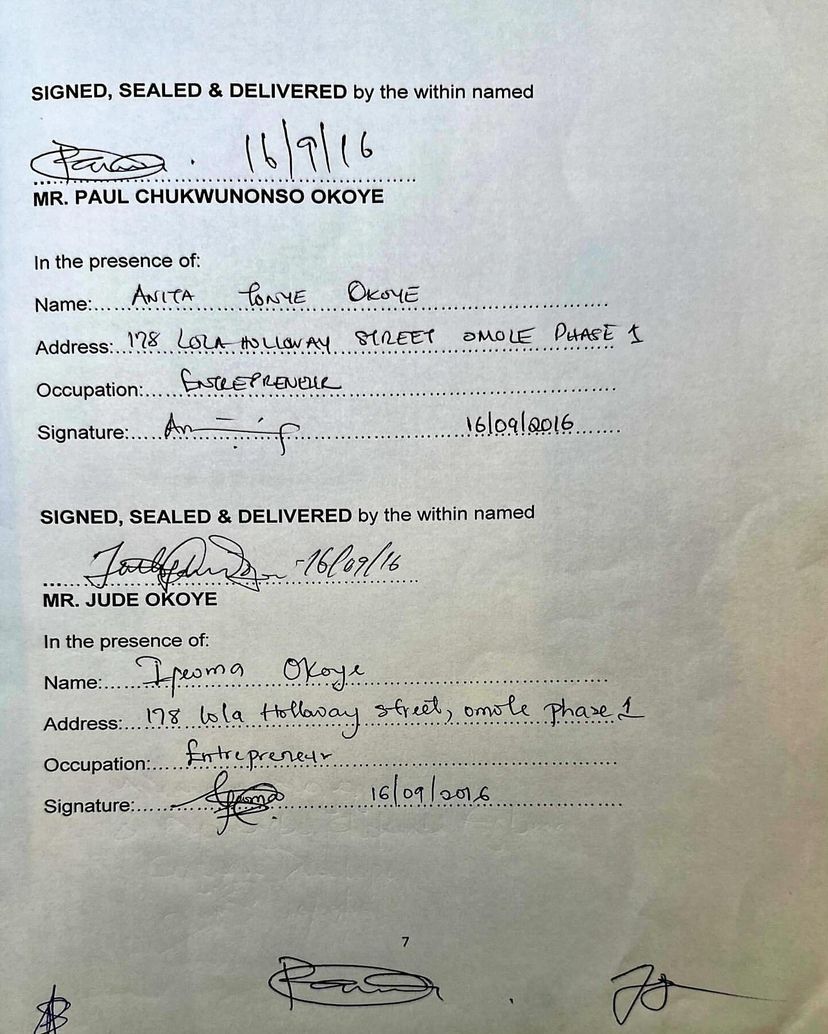 SIGNED, SEALED & DELIVERED by the within named
16/9/16
MR. PAUL CHUKWUNONSO OKOYE
In the presence of:
Name:... ANITA TONYE OKOYE
Address: 178 LOLA HOLLOWAY STREET OMOLE PHASE 1
Occupation:... ENTREPRENEUR
Signature:... 16/09/2016
SIGNED, SEALED & DELIVERED by the within named
16/09/16
MR. JUDE OKOYE
In the presence of:
Name:... Ifeoma Okoye
Address:... 178 lola Hollaway street, omole phase 1
Occupation:... Entrepreneur
Signature:... 16/09/2016
7